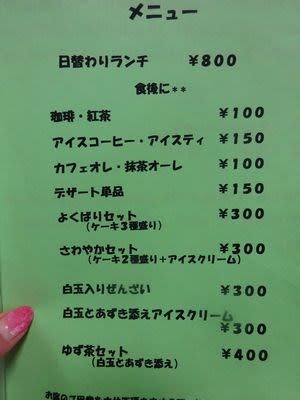 メニュー
日替わりランチ ￥800
食後に**
珈琲・紅茶 ￥100
アイスコーヒー・アイスティ ￥150
カフェオレ・抹茶オーレ ￥100
デザート単品 ￥150
よくばりセット ￥300
(ケーキ3種盛り)
さわやかセット ￥300
(ケーキ2種盛り+アイスクリーム)
白玉入りぜんざい ￥300
白玉とあずき添えアイスクリーム
￥300
ゆず茶セット ￥400
(白玉とあずき添え)